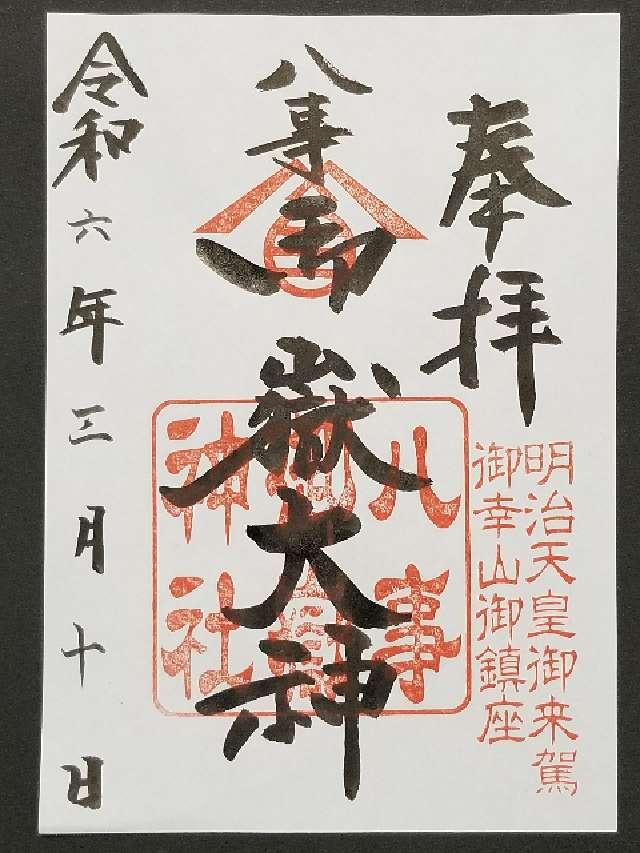 奉拝
明治天皇御来駕
御幸山御鎮座
八事御嶽大神
八事
神社
令和六年三月十日